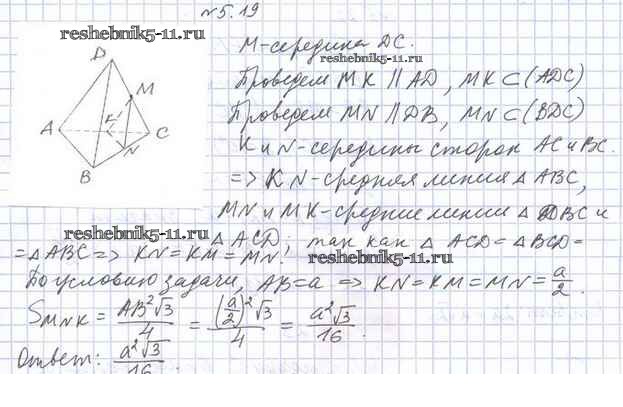 №5.19
reshebnik5-11.ru
М-середина DC.
reshebnik5-11.ru
Проведем MK || AD, MK ⊂ (ADC)
Проведем MN || DB, MN ⊂ (BDC)
K и N-середины сторон AC и BC.
=> KN-средняя линия △ ABC,
MN и MK-средние линии △ DBC и
reshebnik5-11.ru
△ ACD; так как △ ACD = △ BCD =
= △ ABC => KN = KM = MN.
reshebnik5-11.ru
По условию задачи, AB = a => KN = KM = MN = a/2.
S MNK = AB²√3/4 = (a/2)²√3/4 = a²√3/16.
Ответ: a²√3/16.
D
M
A
K
C
N
B